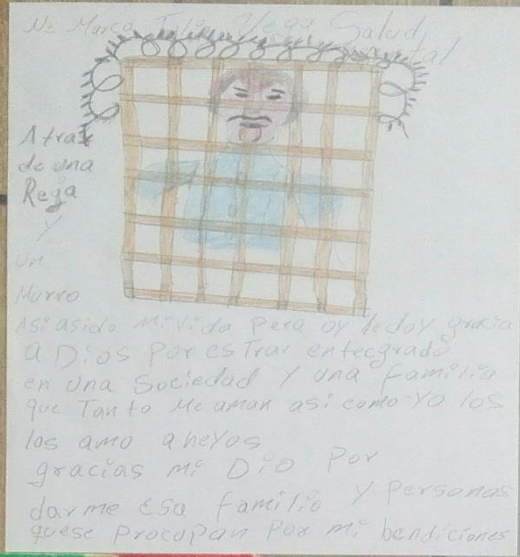 Me Marco Tulio Vega Salud
mental
Atras
de una
Reja
Y
un
Murro
Asi asido Mi vida pero oy ledoy gracia
a Dios por estrar entecgrado
en una Sociedad Y una familia
que Tanto Me aman asi como Yo los
los amo aheyos
gracias mi Dio por
darme esa familio Y personas
quese procupan por mi bendiciones